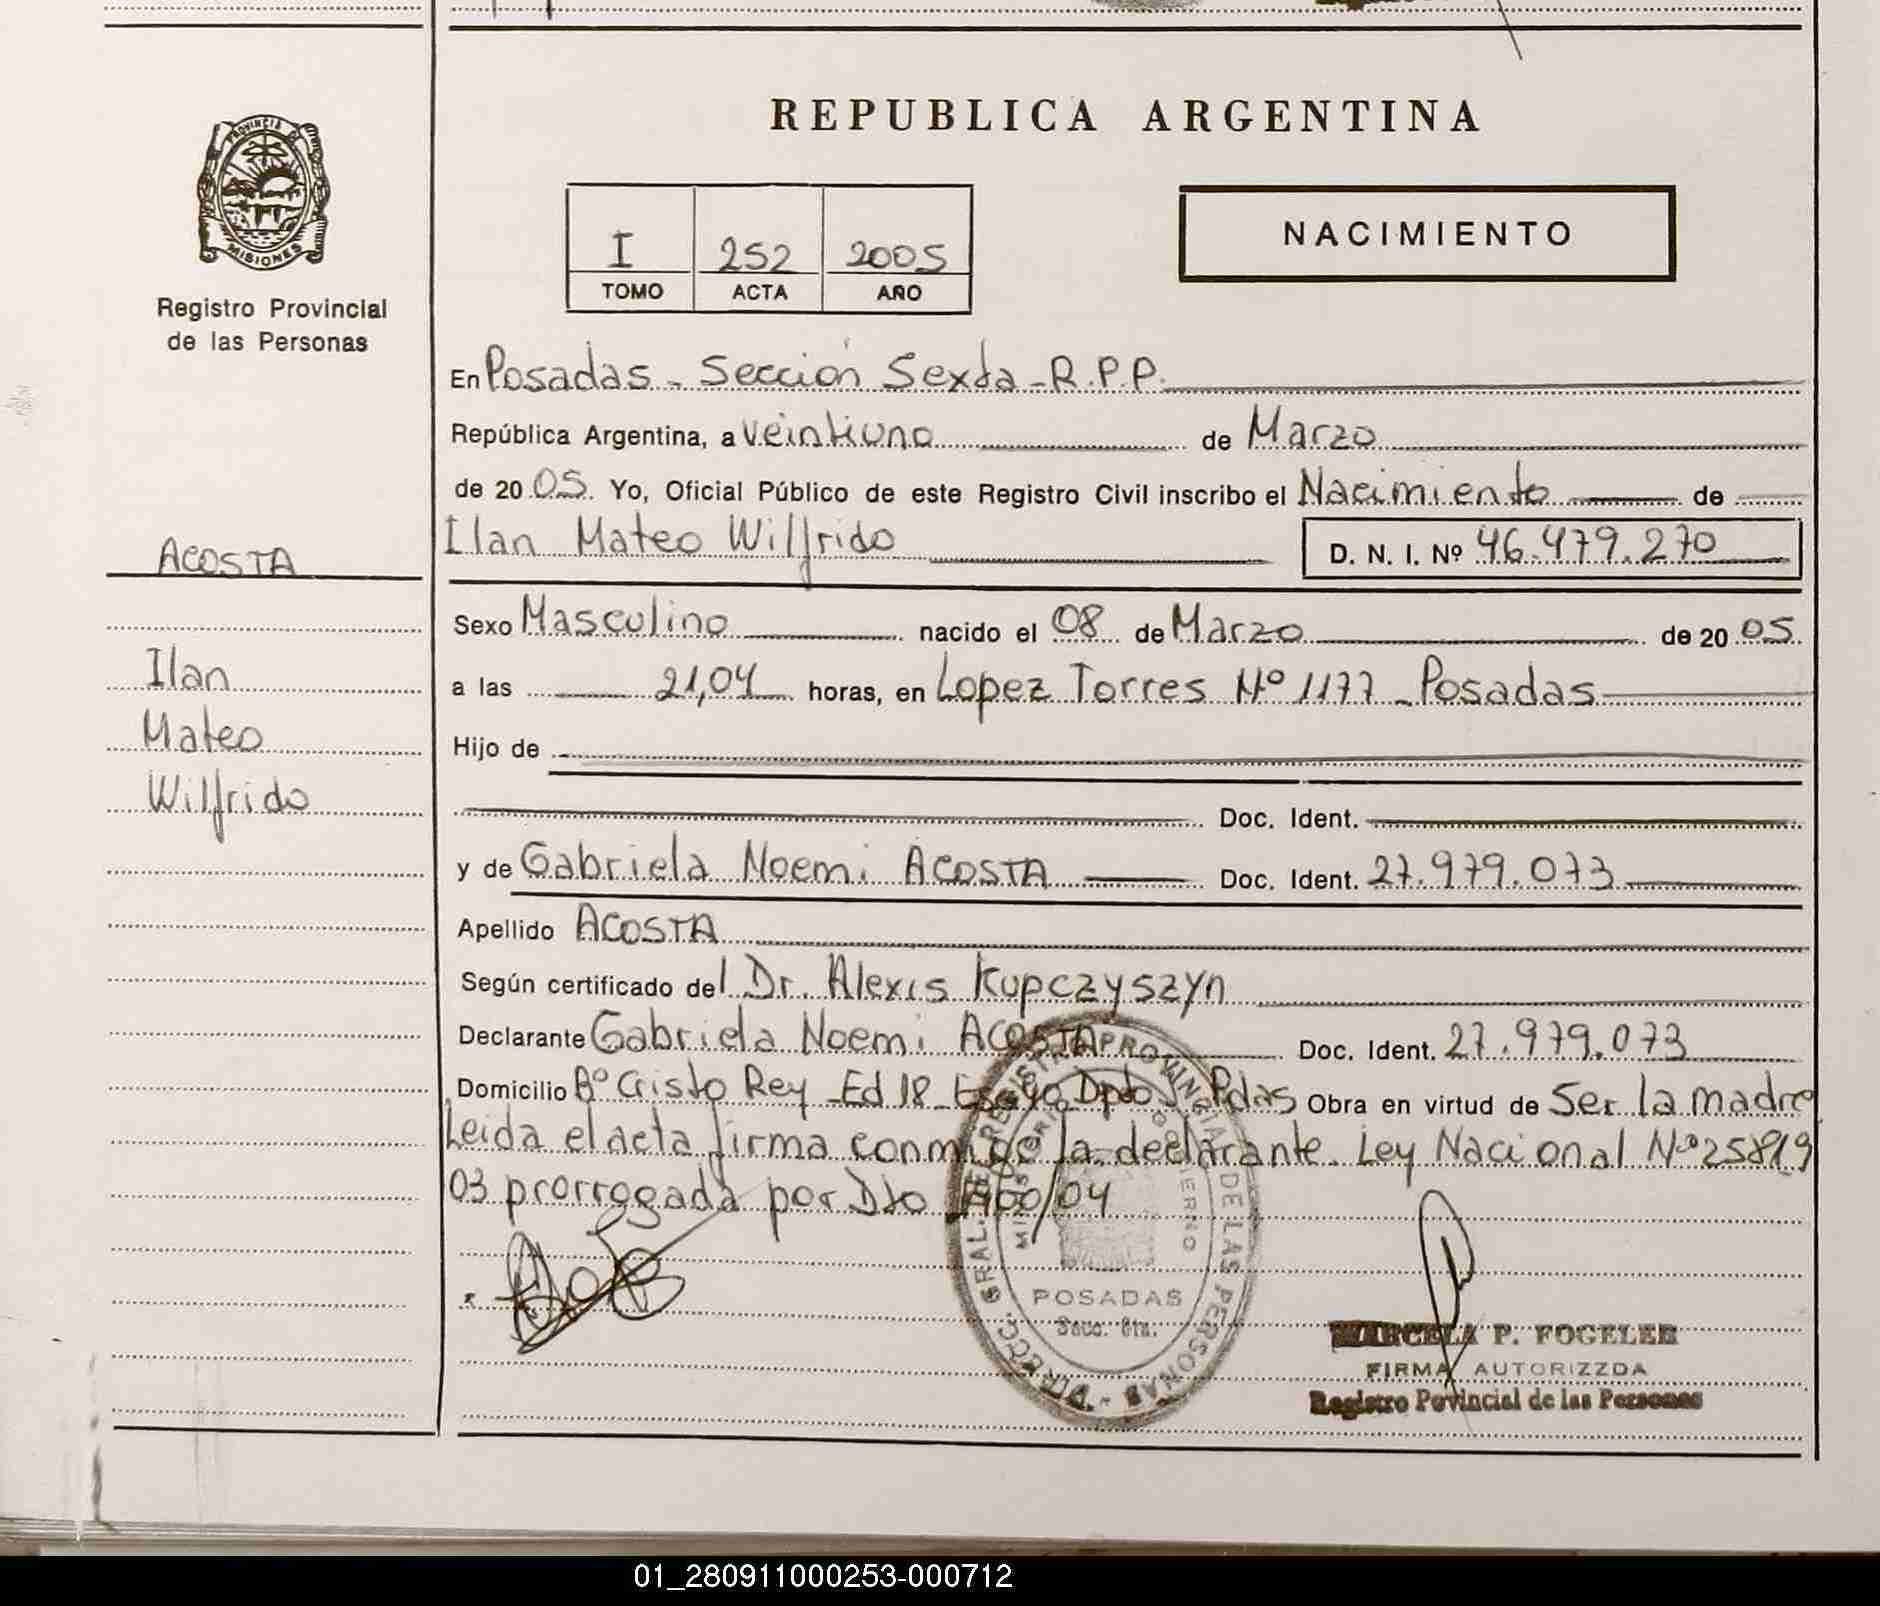 REPUBLICA ARGENTINA
PROVINCIA DE
MISIONES
Registro Provincial
de las Personas
I 252 2005
TOMO ACTA AÑO
NACIMIENTO
En Posadas - Sección Sexta - R.P.P.
República Argentina, a veintiuno de Marzo
de 20 05. Yo, Oficial Público de este Registro Civil inscribo el Nacimiento de
Ilan Mateo Wilfrido D. N. I. Nº 46.479.270
ACOSTA
Ilan
Mateo
Wilfrido
Sexo Masculino nacido el 08 de Marzo de 20 05.
a las 21,04 horas, en Lopez Torres Nº 1177 - Posadas
Hijo de
Doc. Ident.
y de Gabriela Noemi ACOSTA Doc. Ident. 27.979.073
Apellido ACOSTA
Según certificado del Dr. Alexis Kupczyszyn
Declarante Gabriela Noemi ACOSTA Doc. Ident. 27.979.073
Domicilio Bº Cristo Rey - Ed 18 - Dpto Pdas Obra en virtud de Ser la madre
Leida el acta firma conmigo la declarante. Ley Nacional Nº 25819
03 prorrogada por Dto /04
DIRECC. GRAL. DE REGISTRO PROVINCIAL DE LAS PERSONAS
POSADAS
MARCELA P. FOGELER
FIRMA AUTORIZZDA
Registro Povincial de las Personas
01_280911000253-000712